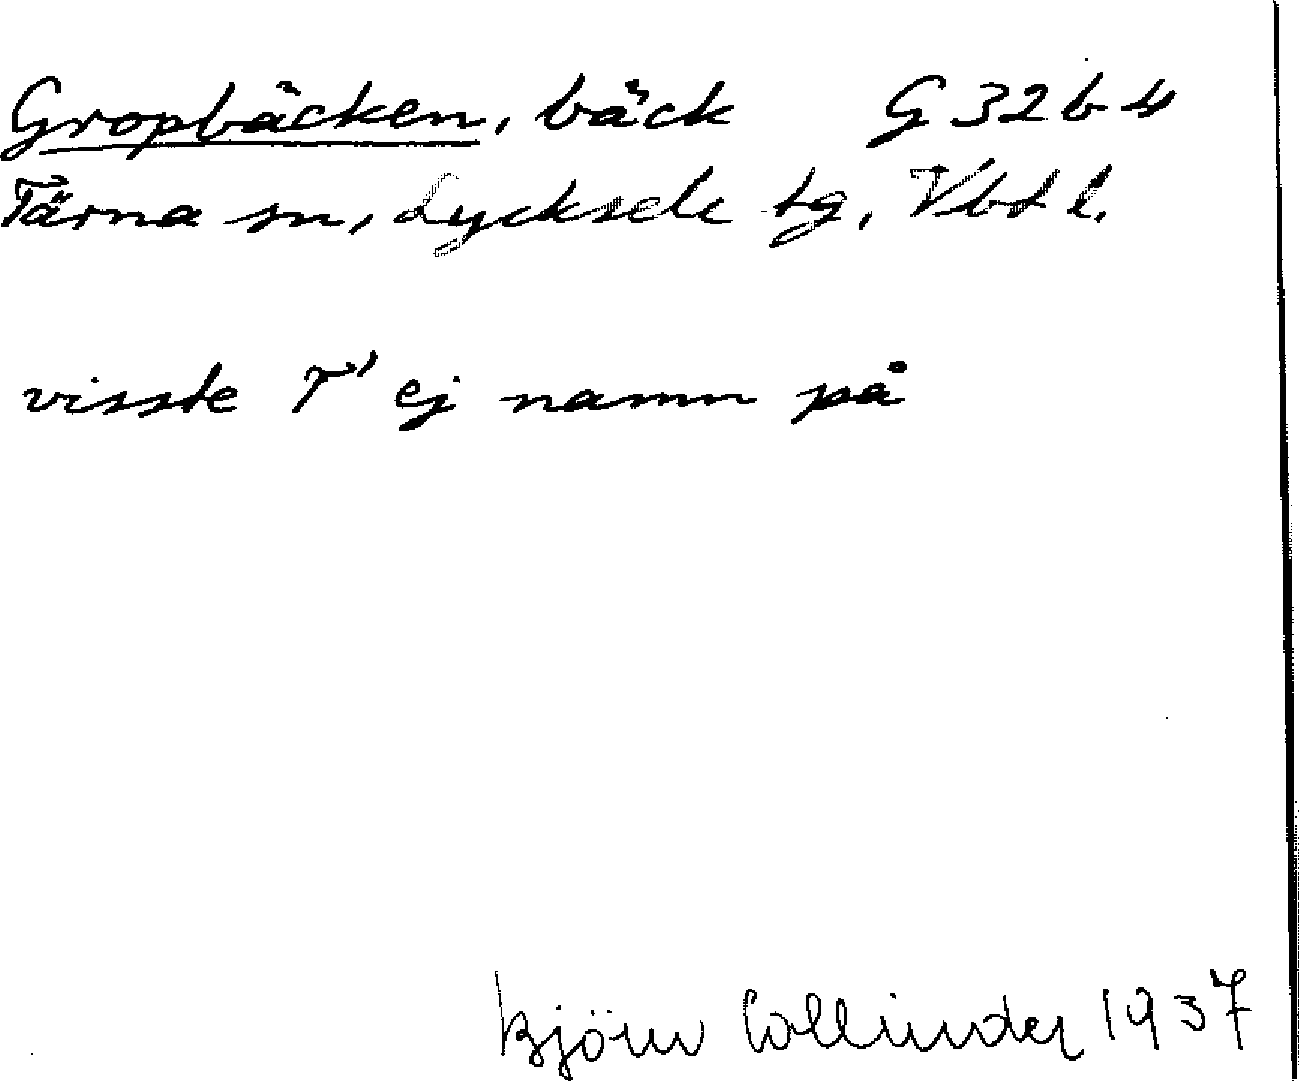 Gropbäcken, bäck G 32 b 4
Tärna sn, Lycksele tg, Vbtl.
visste T' ej namn på
Björn Collinder 1937